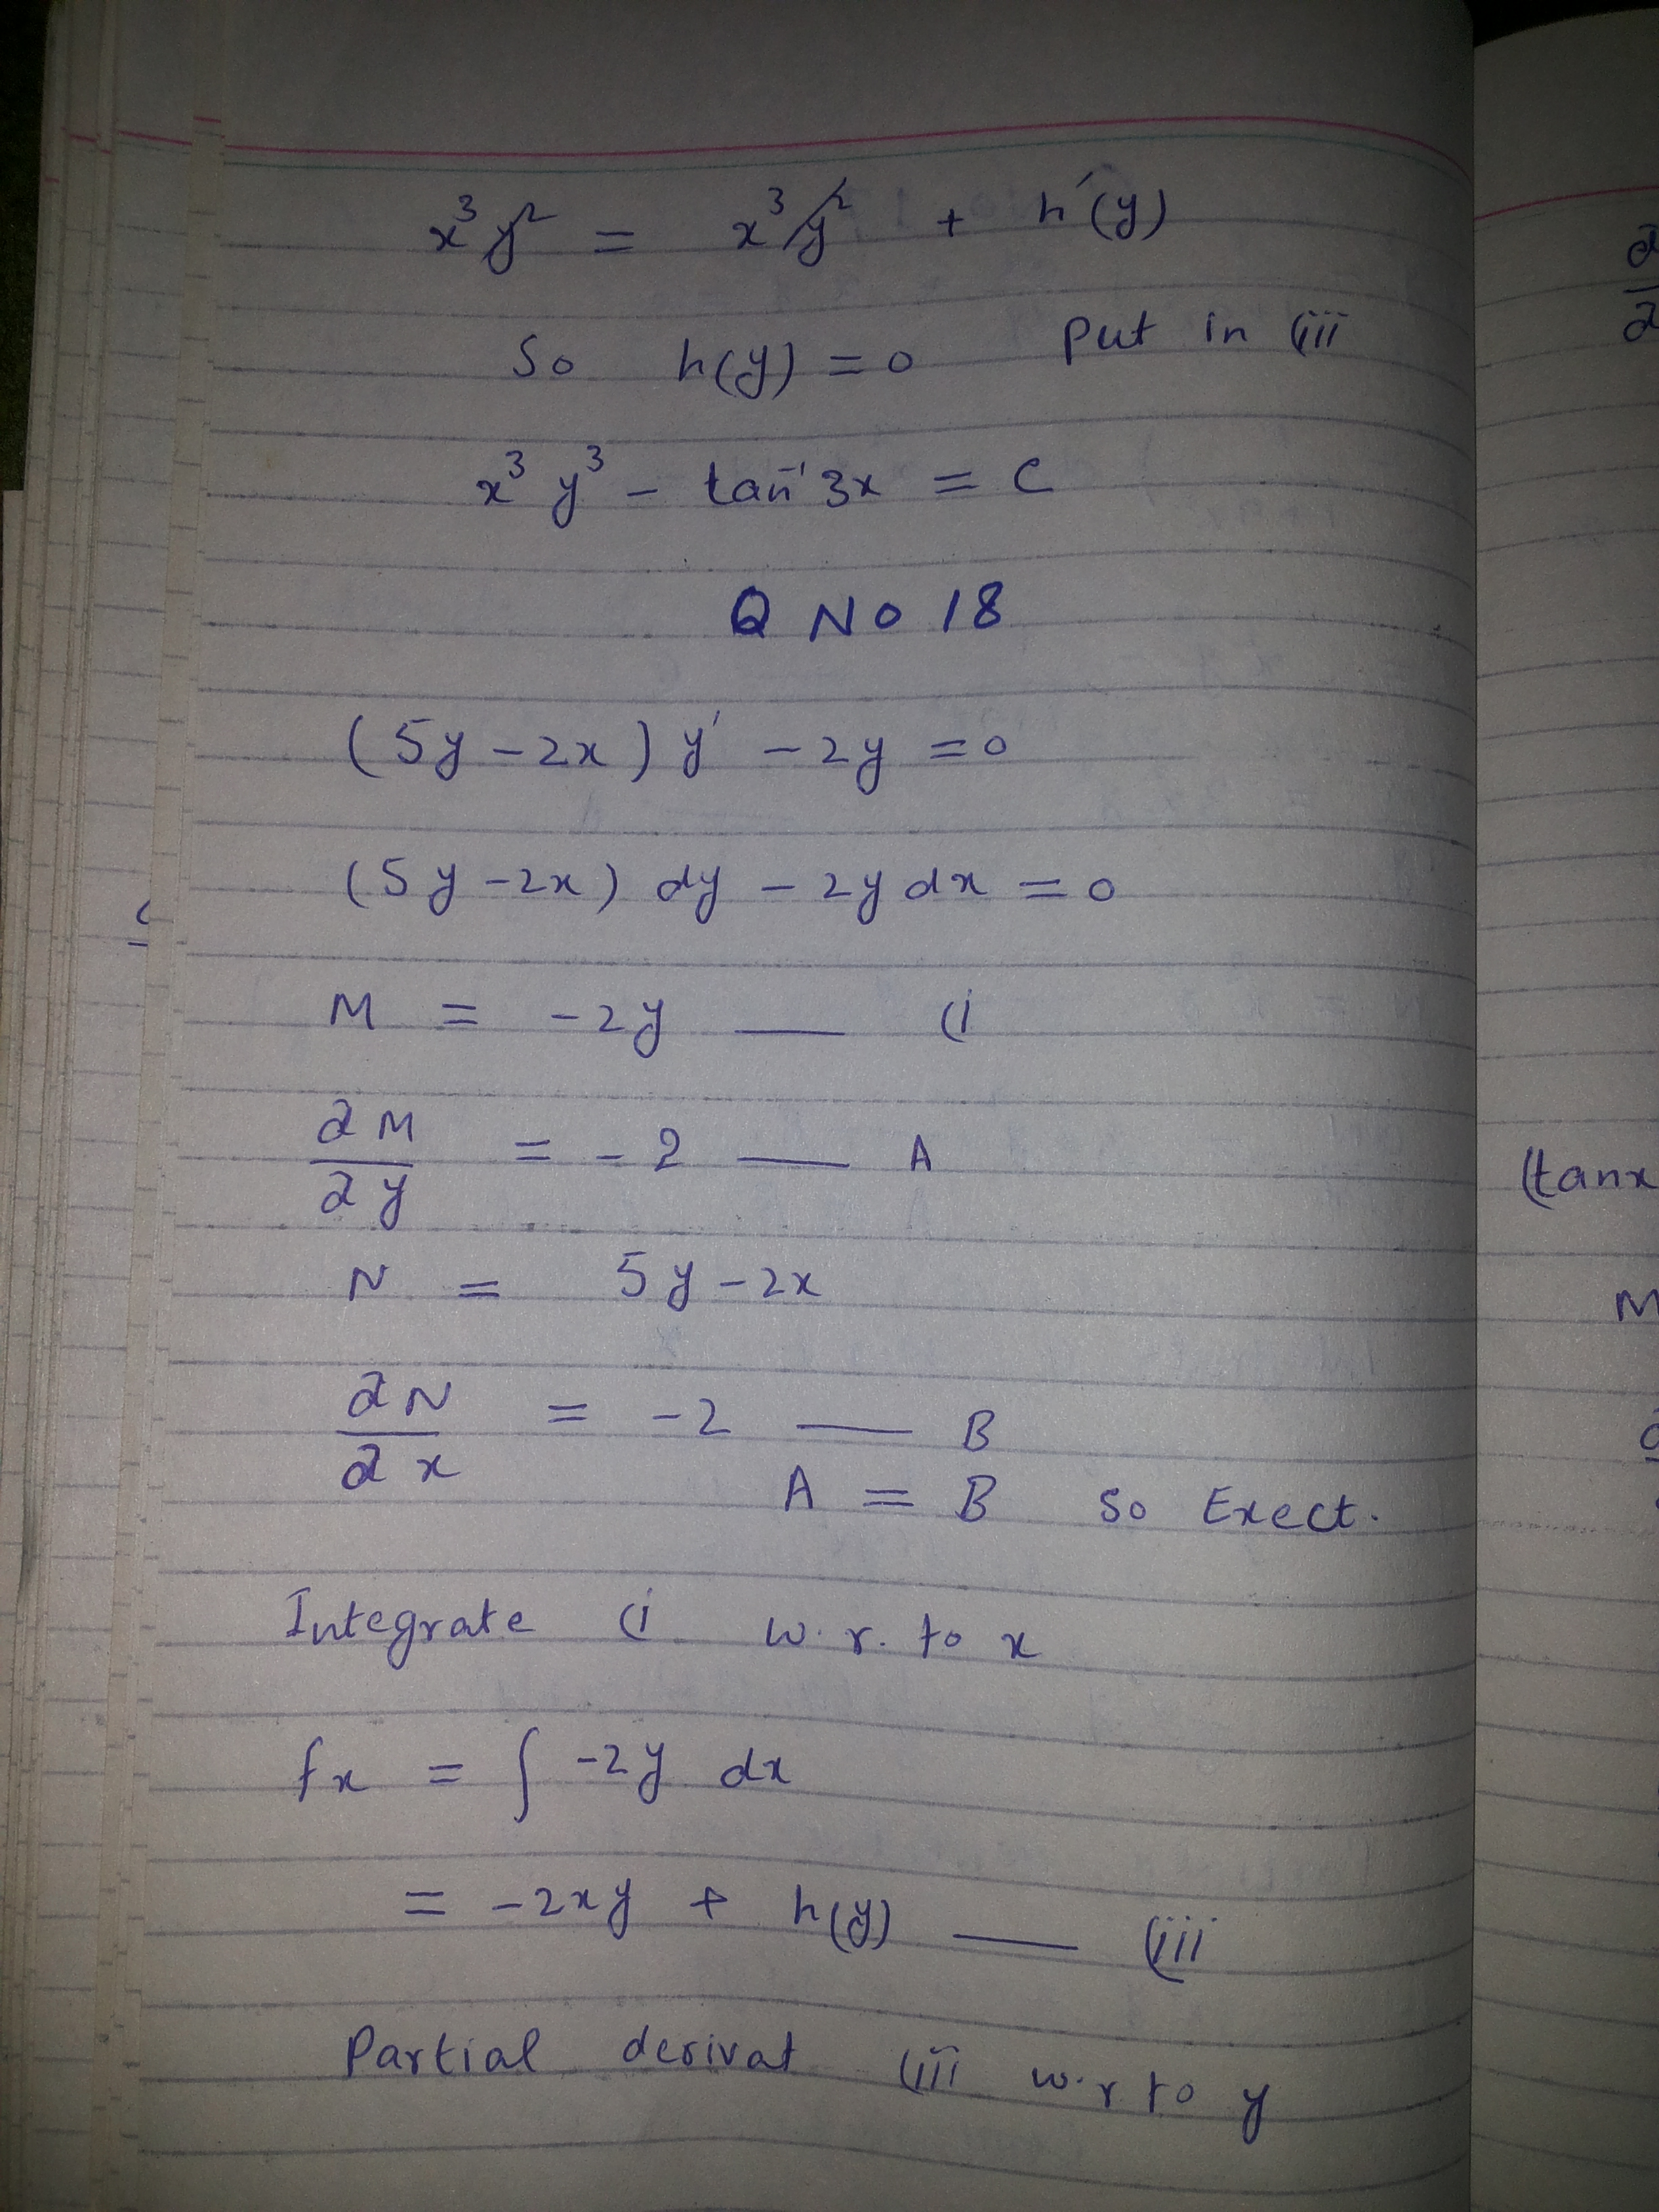 x³y² = x³y² + h'(y)
So h(y) = 0 Put in (iii
x³ y³ - tan⁻¹ 3x = C
Q No 18
(5y - 2x) y' - 2y = 0
(5y - 2x) dy - 2y dx = 0
M = -2y — (i
∂M/∂y = -2 — A
N = 5y - 2x
∂N/∂x = -2 — B
A = B So Exect.
Integrate (i w.r. to x
fx = ∫ -2y dx
= -2xy + h(y) — (iii
Partial derivat (iii w.r to y
∂/∂
(tanx
M